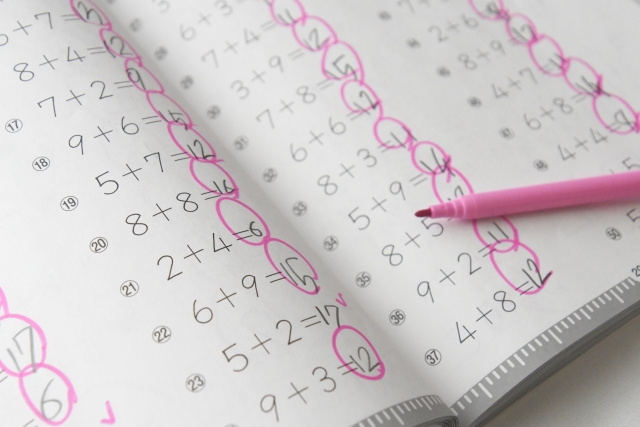 +7=12
8+4=12
⑰ 7+2=9
⑱ 9+6=15
⑲ 5+7=12
⑳ 8+8=16
㉑ 2+4=6
㉒ 6+9=15
㉓ 5+2=17
9+3=12
17
6
6+3=
㉙ 7+4=11
㉚ 3+9=12
㉛ 7+8=15
㉜ 6+6=12
㉝ 8+3=11
㉞ 5+9=14
㉟ 8+5
㊱ 9+2=11
㊲ 4+8=12
2+6=
8+9=
4+7=11
6+8=14
4+4=8
㊿